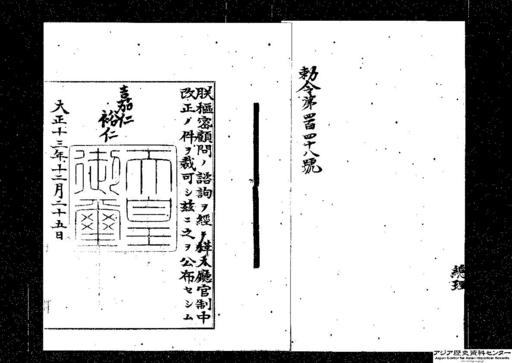 勅令第四百四十八號
朕樞密顧問ノ諮詢ヲ經タル樺太廳官制中
改正ノ件ヲ裁可シ茲ニ之ヲ公布セシム
嘉仁
裕仁
天皇
御璽
大正十三年十二月二十五日
アジア歴史資料センター
Japan Center for Asian Historical Records